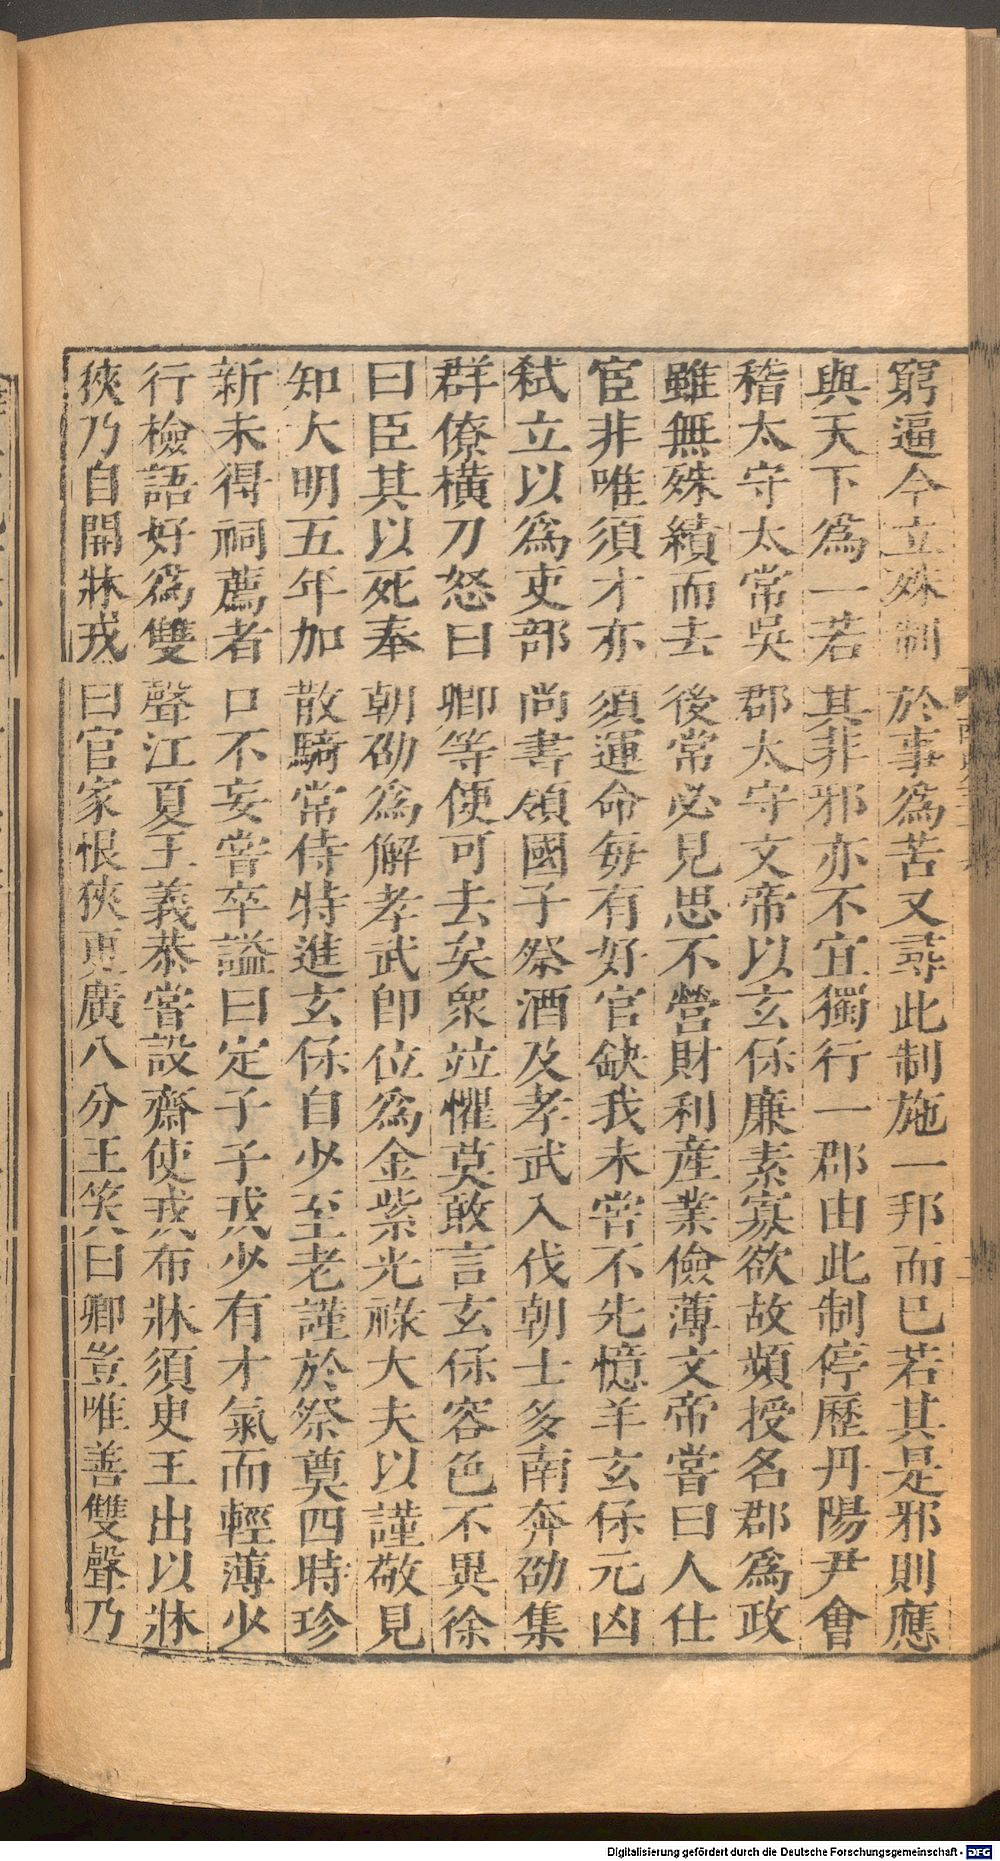 窮逼今立殊制於事為苦又尋此制施一邦而已若其是邪則應
與天下為一若其非邪亦不宜獨行一郡由此制停歷丹陽尹會
稽太守太常吳郡太守文帝以玄保廉素寡欲故頻授名郡為政
雖無殊績而去後常必見思不營財利產業儉薄文帝嘗曰人仕
宦非唯須才亦須運命每有好官缺我未嘗不先憶羊玄保元凶
弒立以為吏部尚書領國子祭酒及孝武入伐朝士多南奔劭集
群僚橫刀怒曰卿等便可去矣眾竝懼莫敢言玄保容色不異徐
曰臣其以死奉朝劭為解孝武即位為金紫光祿大夫以謹敬見
知大明五年加散騎常侍特進玄保自少至老謹於祭奠四時珍
新未得祠薦者口不妄嘗卒謚曰定子子戎少有才氣而輕薄少
行檢語好為雙聲江夏王義恭嘗設齋使戎布牀須臾王出以牀
狹乃自開牀戎曰官家恨狹更廣八分王笑曰卿豈唯善雙聲乃
Digitalisierung gefördert durch die Deutsche Forschungsgemeinschaft - DFG